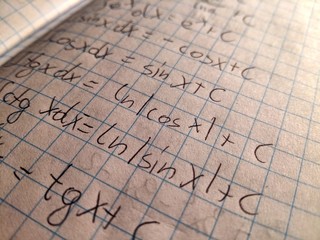 + C
dx = e^x + C
sinxdx = - cosx + C
cosxdx = sinx + C
tgxdx = ln|cosx| + C
ctg xdx = ln|sinx| + C
= tgx + C